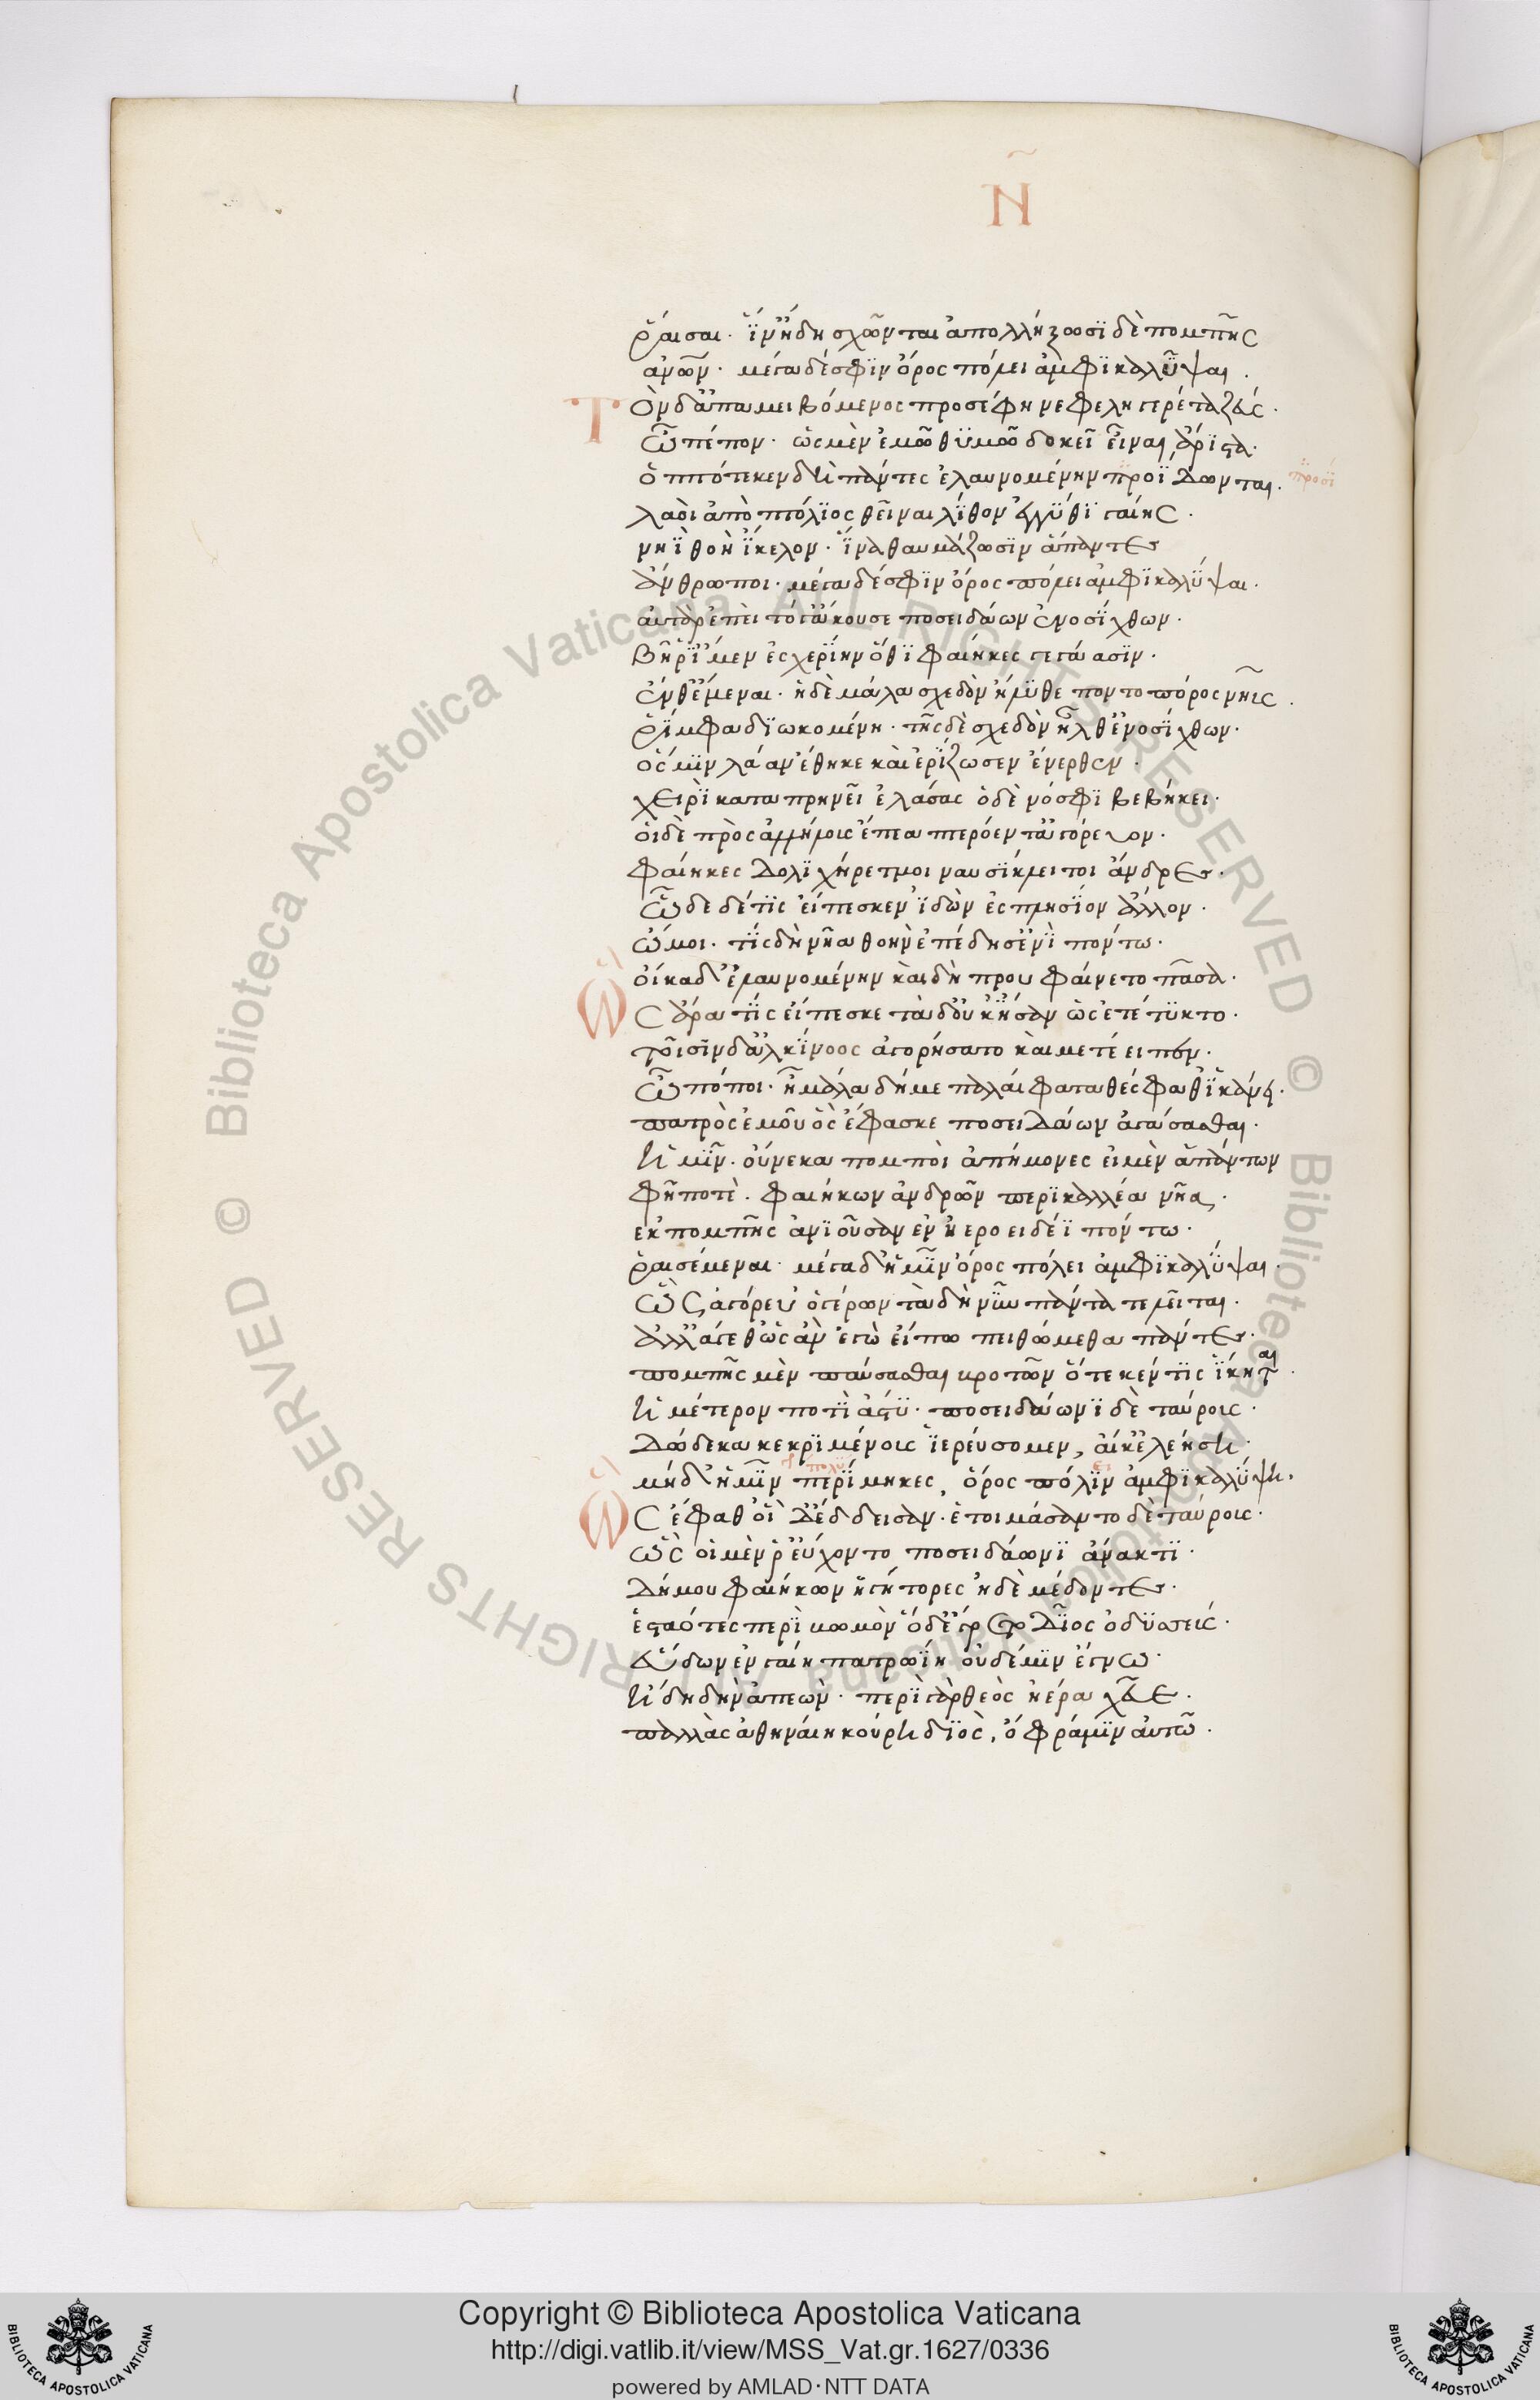 Ν̃
ῥάισαι· ἵν᾽ ἤδη σχῶνται ἀπολλήξωσϊ δὲ πομπῆς
ἀνῶν· μέγα δέ σφϊν ὄρος πόλει ἀμφϊκαλῦψαι.
Τὸν δ᾽ ἀπαμειβόμενος προσέφη νεφεληγερέτα ζεύς·
ὦ πέπον· ὡς μὲν ἐμῶ θϋμῶ δοκεῖ εἶναι ἄρϊστα·
ὁππότε κεν δὴ πάντες ἐλαυνομένην προΐδωνται. προσί
λαοὶ ἀπὸ πτόλϊος θεῖναι λίθον ἐγγύθϊ γαίης·
νηῒ θοῇ ἴκελον· ἵνα θαυμάζωσϊν ἅπαντες
ἄνθρωποι· μέγα δέ σφϊν ὄρος πόλει ἀμφϊκαλύψαι·
αὐτὰρ ἐπεὶ τόγ᾽ ἄκουσε ποσειδάων ἐνοσίχθων·
βῆ ῥ᾽ ἴμεν ἐς χερίην ὅθϊ φαίηκες γεγάασϊν·
ἔνθ᾽ ἔμεναι· ἡ δὲ μάλα σχεδὸν ἤλϋθε ποντοπόρος νηῦς.
ῥίμφα διωκομένη· τῆς δὲ σχεδὸν ἦλθ᾽ ἐνοσίχθων·
ὅς μϊν λάαν ἔθηκε καὶ ἐρίζωσεν ἔνερθεν·
χειρὶ καταπρηνεῖ ἐλάσας ὁ δὲ νόσφϊ βεβήκει·
οἱ δὲ πρὸς ἀλλήλοις ἔπεα πτερόεντ᾽ ἀγόρευον·
φαίηκες δολϊχήρετμοι ναυσϊκλειτοι ἄνδρες·
ὧδε δέ τϊς εἴπεσκεν ἰδὼν ἐς πλησίον ἄλλον·
ὤμοι· τίς δὴ νῆα θοὴν ἐπέδησ᾽ ἐνὶ πόντω·
οἴκαδ᾽ ἐλαυνομένην καὶ δὴ προυφαίνετο πᾶσα·
Ὣς ἄρα τίς εἴπεσκε τὰ δ᾽ οὐκ ἤισαν ὡς ἐτέτϋκτο·
τοῖσϊν δ᾽ ἀλκίνοος ἀγορήσατο καὶ μετέειπεν·
ὦ πόποι· ἦ μάλα δή με παλαίφατα θέσφαθ᾽ ϊκάνει·
πατρὸς ἐμοῦ ὃς ἔφασκε ποσειδάων ἀγάσασθαι·
ἡμῖν· οὕνεκα πομποὶ ἀπήμονες εἰμὲν ἁπάντων
φῆ ποτὲ· φαιήκων ἀνδρῶν περϊκαλλέα νῆα,
εκ πομπῆς ἀνϊοῦσαν ἐν ἠεροειδέϊ πόντω·
ῥαισέμεναι· μέγα δ᾽ ἥμϊν ὄρος πόλει ἀμφϊκαλύψαι·
ὣς ἀγόρευ᾽ ὁ γέρων τὰ δὴ νῦν πάντα τελεῖται·
ἀλλ᾽ ἄγεθ᾽ ὡς ἂν ἐγὼ εἴπω πειθώμεθα πάντες·
πομπῆς μὲν παύσασθαι βροτῶν ὅτε κέν τϊς ἵκηται·
ἡμέτερον ποτὶ ἄστϋ· ποσειδάωνϊ δὲ ταύροις·
δώδεκα κεκρϊμένοις ἱερεύσομεν, αἴ κ᾽ ἐλεήση·
μήδ᾽ ἥμϊν περίμηκες, ὄρος πόλϊν ἀμφϊκαλύψη.
Ὣς ἔφαθ᾽ οἱ δ᾽ ἔδδεισαν· ἑτοιμάσαντο δὲ ταύροις·
ὣς οἱ μέν ῥ᾽ εὔχοντο ποσειδάωνϊ ἄνακτϊ·
δήμου φαιήκων ἡγήτορες ἠδὲ μέδοντες·
ἑσταότες περὶ βωμὸν ὁ δ᾽ ἔγρετο δῖος ὀδϋσσεύς·
εὕδων ἐν γαίη πατρωΐη οὐδέ μϊν ἔγνω·
ἤδη δὴν ἀπεών· περὶ γὰρ θεὸς ἠέρα χεῦε·
παλλὰς ἀθηναίη κούρη δϊὸς, ὄφρά μϊν αὐτὸν·
Copyright © Biblioteca Apostolica Vaticana
http://digi.vatlib.it/view/MSS_Vat.gr.1627/0336
powered by AMLAD·NTT DATA
BIBLIOTECA APOSTOLICA VATICANA
BIBLIOTECA APOSTOLICA VATICANA
© Biblioteca Apostolica Vaticana ALL RIGHTS RESERVED
© Biblioteca Apostolica Vaticana ALL RIGHTS RESERVED